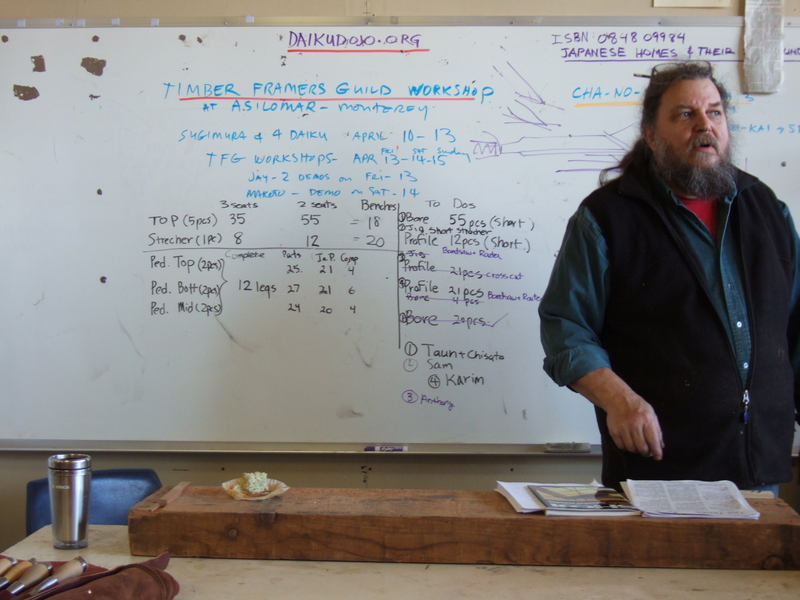 DAIKUDOJO.ORG
ISBN 0848 09984
JAPANESE HOMES & THEIR
TIMBER FRAMERS GUILD WORKSHOP
AT ASILOMAR - MONTEREY
CHA-NO-
SUGIMURA & 4 DAIKU APRIL 10-13
TFG WORKSHOPS- APR 13-14-15
FRI SAT Sunday
JAY-2 DEMOS ON FRI-13
MAKOTO - DEMO ON SAT-14
3 seats 2 seats Benches
TOP (5pcs) 35 55 = 18
Strecher (1pc) 8 12 = 20
Complete Parts J.P. Comp
Ped. Top (2pcs) 25 21 4
Ped. Bott (2pcs) 12 legs 27 21 6
Ped. Mid (2pcs) 24 20 4
To Dos
① Bore 55pcs (Short)
② Jig. Short strecher
Profile 12pcs (Short)
Jig Bandsaw + Router
Profile 21pcs crosscut
Profile 21pcs Bandsaw + Router
Bore 4 pcs
Bore 20pcs
① Taun + Chisato
② Sam
④ Karim
③ Anthony